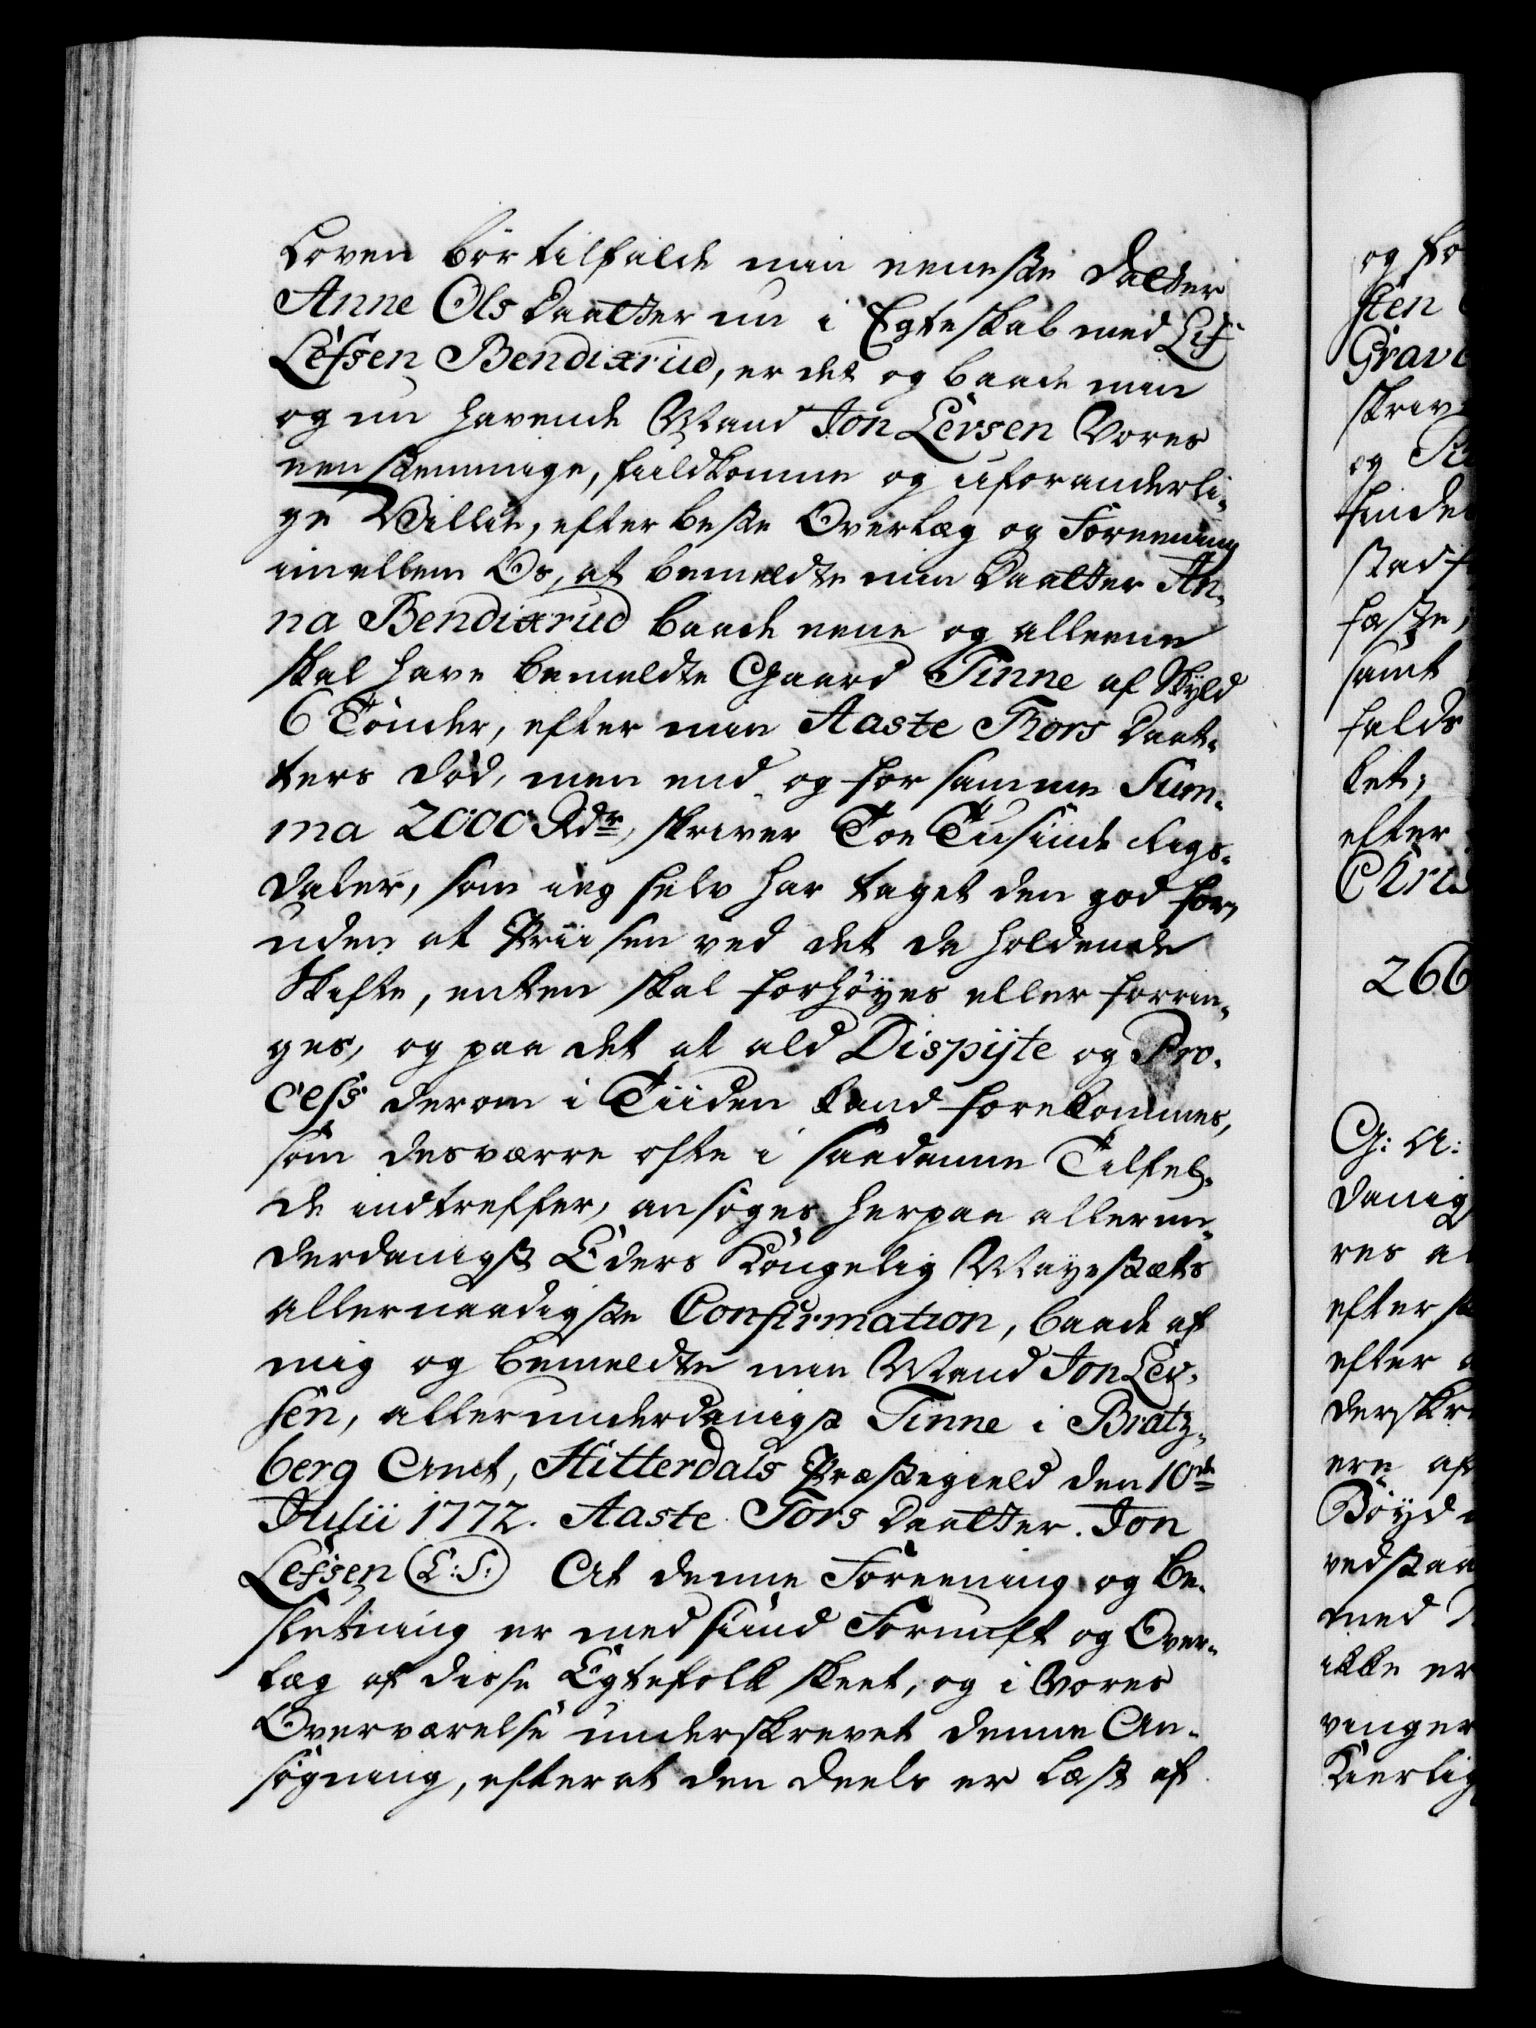 Loven bør tilfalde min eeneste Datter
Anne Olsdaatter nu i Egteskab med Lif
Lefsen Bendixrud, er det og baade min
og nu havende Mand Jon Levsen Vores
eenstemmige, fuldkomne og uforanderli-
ge Villie, efter beste Overlæg og Foreening
imellem Os, at bemeldte min Daatter An-
na Bendixrud baade eene og alleene
skal have bemeldte Gaard Tinne af Skyld
6 Tønder, efter min Aaste Tors Daat-
ters Død, men end og for samme Sum-
ma 2000 Rdr, skriver Toe Tusinde Rigs-
daler, som ieg selv har taget den god for,
uden at Priisen ved det da holdende
Skifte, enten skal forhøyes eller forrin-
ges, og paa det at ald Dispyte og Pro-
cess derom i Tiiden kand forekommes,
som desværre ofte i saadanne Tilfel-
de indtreffer, ansøges herpaa allerun-
derdanigst Eders Kongelig Mayestæts
allernaadigste Confirmation, baade af
mig og bemeldte min Mand Jon Lev-
sen, allerunderdanigst Tinne i Bratz-
berg Amt, Hitterdals Præstegield den 10de
Julii 1772. Aaste Tors Daatter. Jon
Lefsen (L:S:) At denne Foreening og be-
slutning er med sund Fornuft og Over-
læg af disse Egtefolk skeet, og i Vores
Overværelse underskrevet denne An-
søgning, efter at den deels er læst af
og fo
sten
Grav
skriv
og
hinde
stadf
fæste,
samt
holds
ket;
efter
Chris
266
G: A:
danig
res a
efter s
efter
derskr
ere af
Bøyd
vedstaa
med
ikke er
vinger
Kierlig